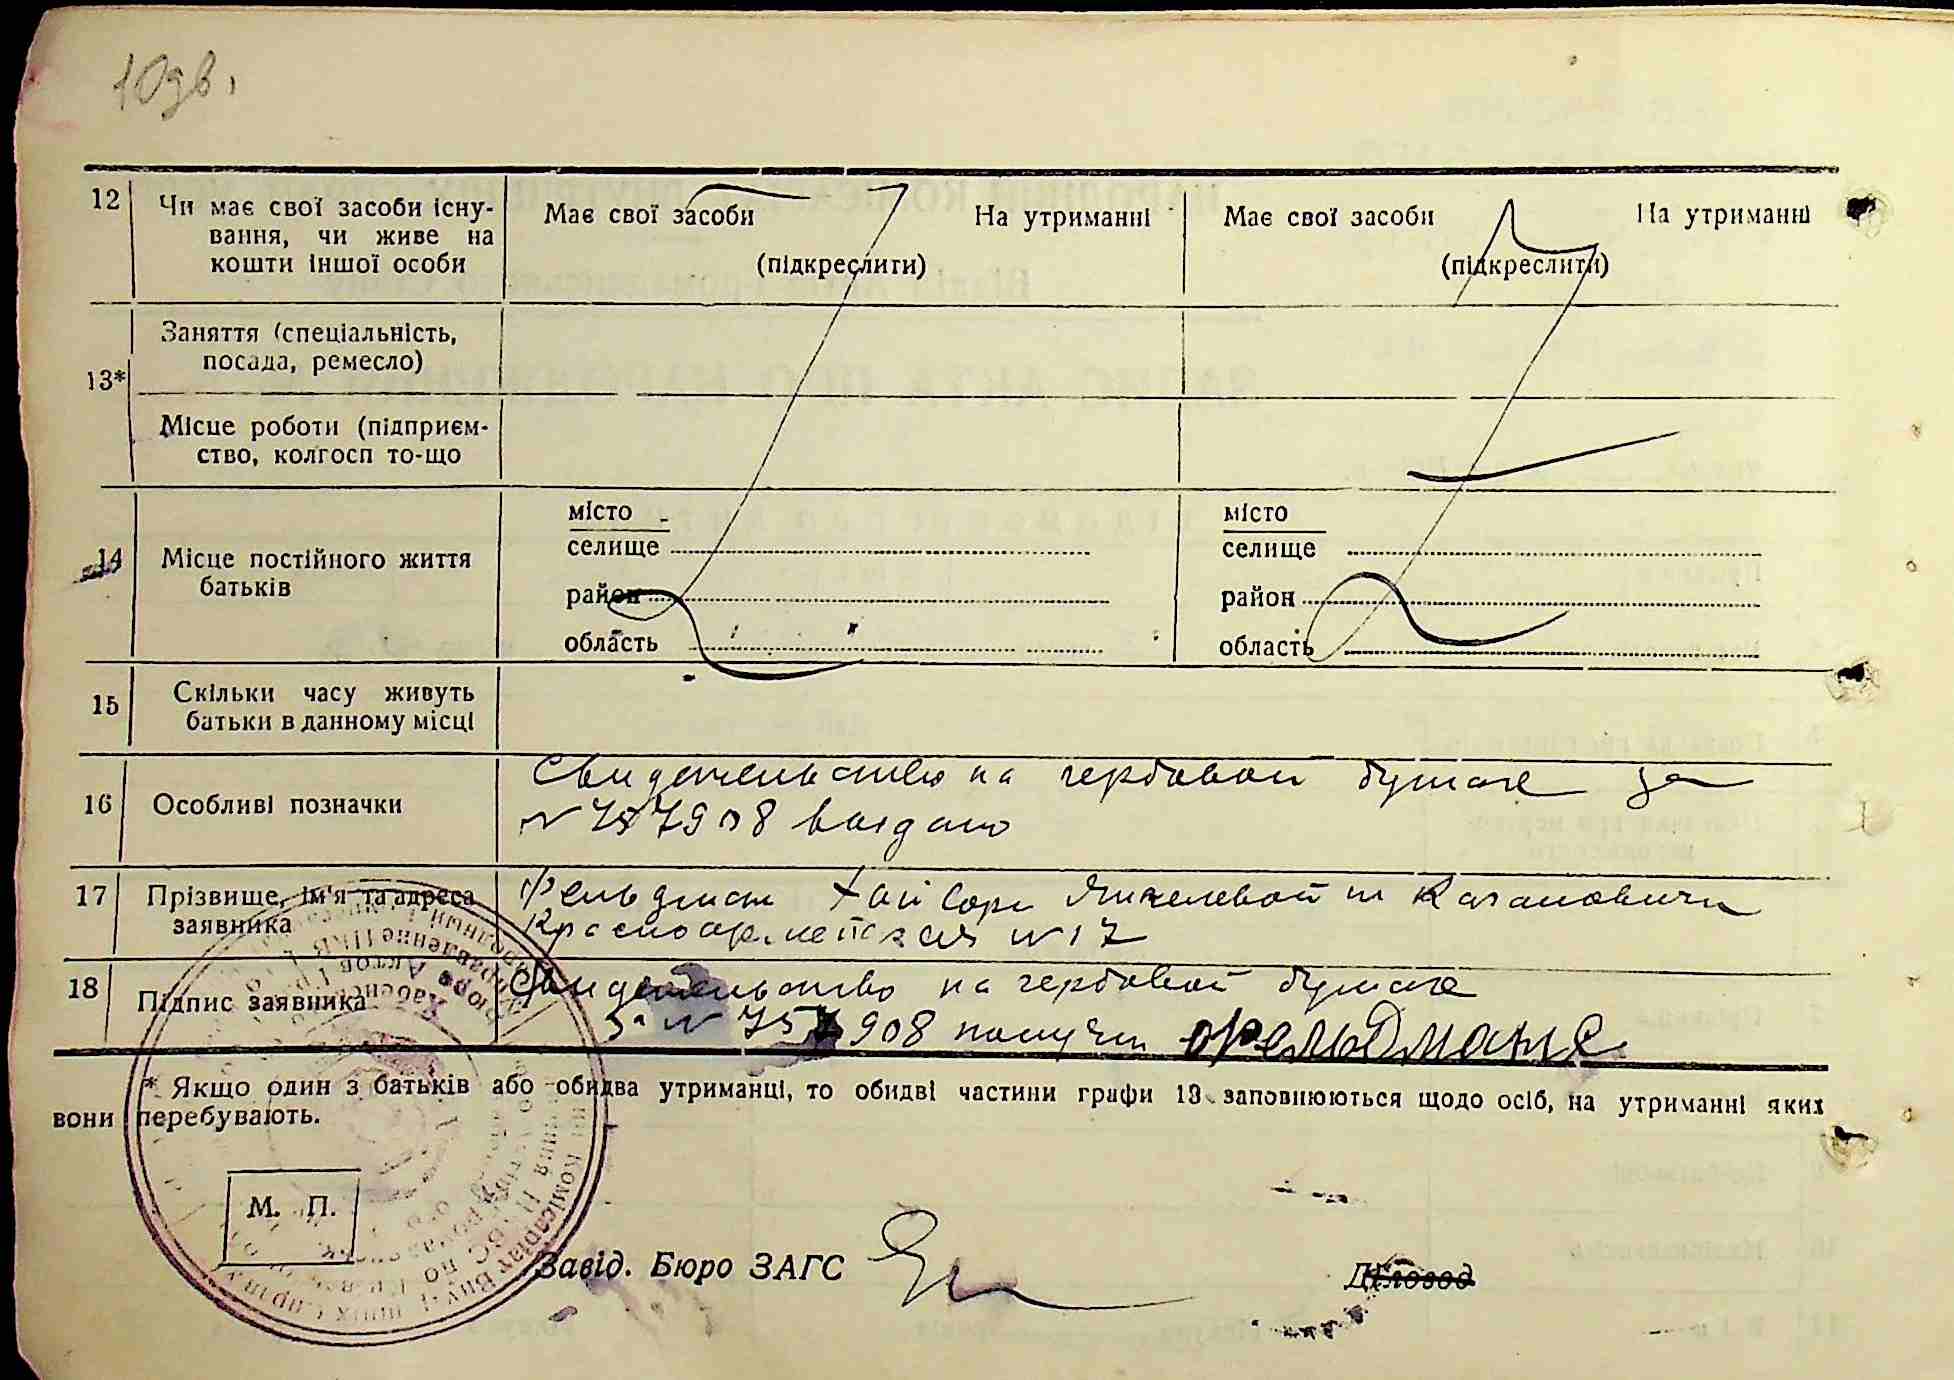 10 дв.
12 Чи має свої засоби існу-
вання, чи живе на
кошти іншої особи
Має свої засоби На утриманні
(підкреслити)
Має свої засоби На утриманні
(підкреслити)
13*
Заняття (спеціальність,
посада, ремесло)
Місце роботи (підприєм-
ство, колгосп то-що
14 Місце постійного життя
батьків
місто
селище
район
область
місто
селище
район
область
15 Скільки часу живуть
батьки в данному місці
16 Особливі позначки
Свидетельство на гербовой бумаге за
№ 757908 выдано
17 Прізвище, ім'я та адреса
заявника
Фельдман Хай Сори Янкелевой м Каганович
Красноармейская № 17
18 Підпис заявника
Свидетельство на гербовой бумаге
за № 757908 получил Фельдман
* Якщо один з батьків або обидва утриманці, то обидві частини графи 13 заповнюються щодо осіб, на утриманні яких
вони перебувають.
М. П.
Завід. Бюро ЗАГС
Діловод